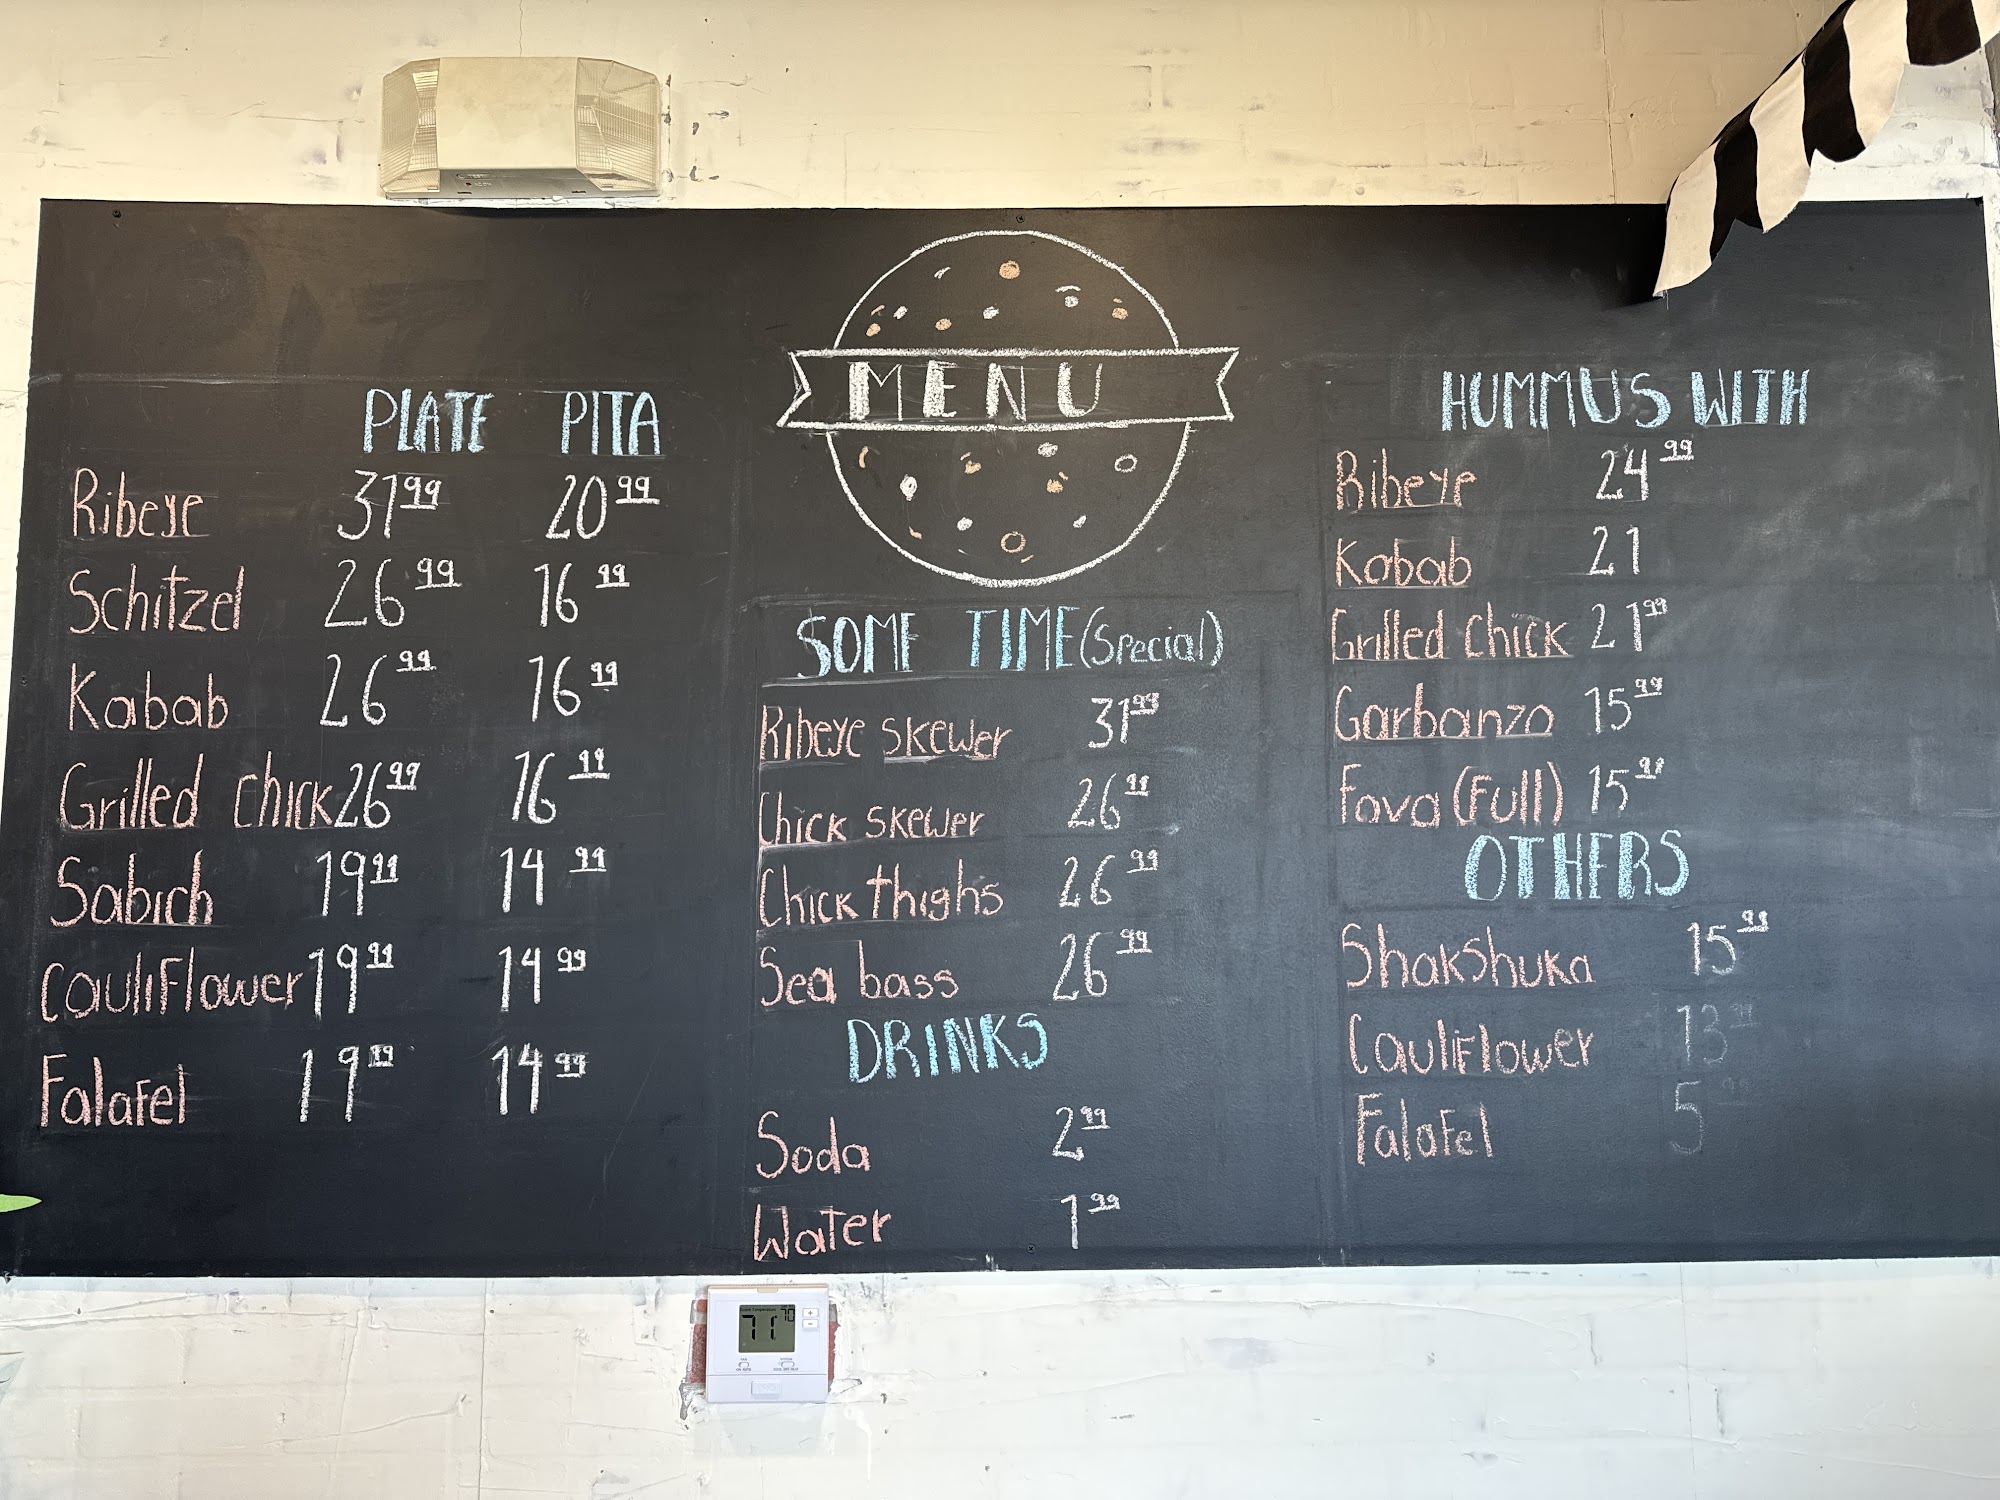 MENU
PLATE PITA
Ribeye 31.99 20.99
Schitzel 26.99 16.99
Kabab 26.99 16.99
Grilled chick 26.99 16.99
Sabich 19.99 14.99
cauliFlower 19.99 14.99
FalaFel 19.99 14.99
SOME TIME (Special)
Ribeye skewer 31.99
Chick skewer 26.99
Chick thighs 26.99
Sea bass 26.99
DRINKS
Soda 2.99
Water 1.99
HUMMUS WITH
Ribeye 24.99
Kabab 21
Grilled chick 21.99
Garbanzo 15.99
Fava (Full) 15.99
OTHERS
Shakshuka 15.99
CauliFlower 13.99
FalaFel 5.99
71 70